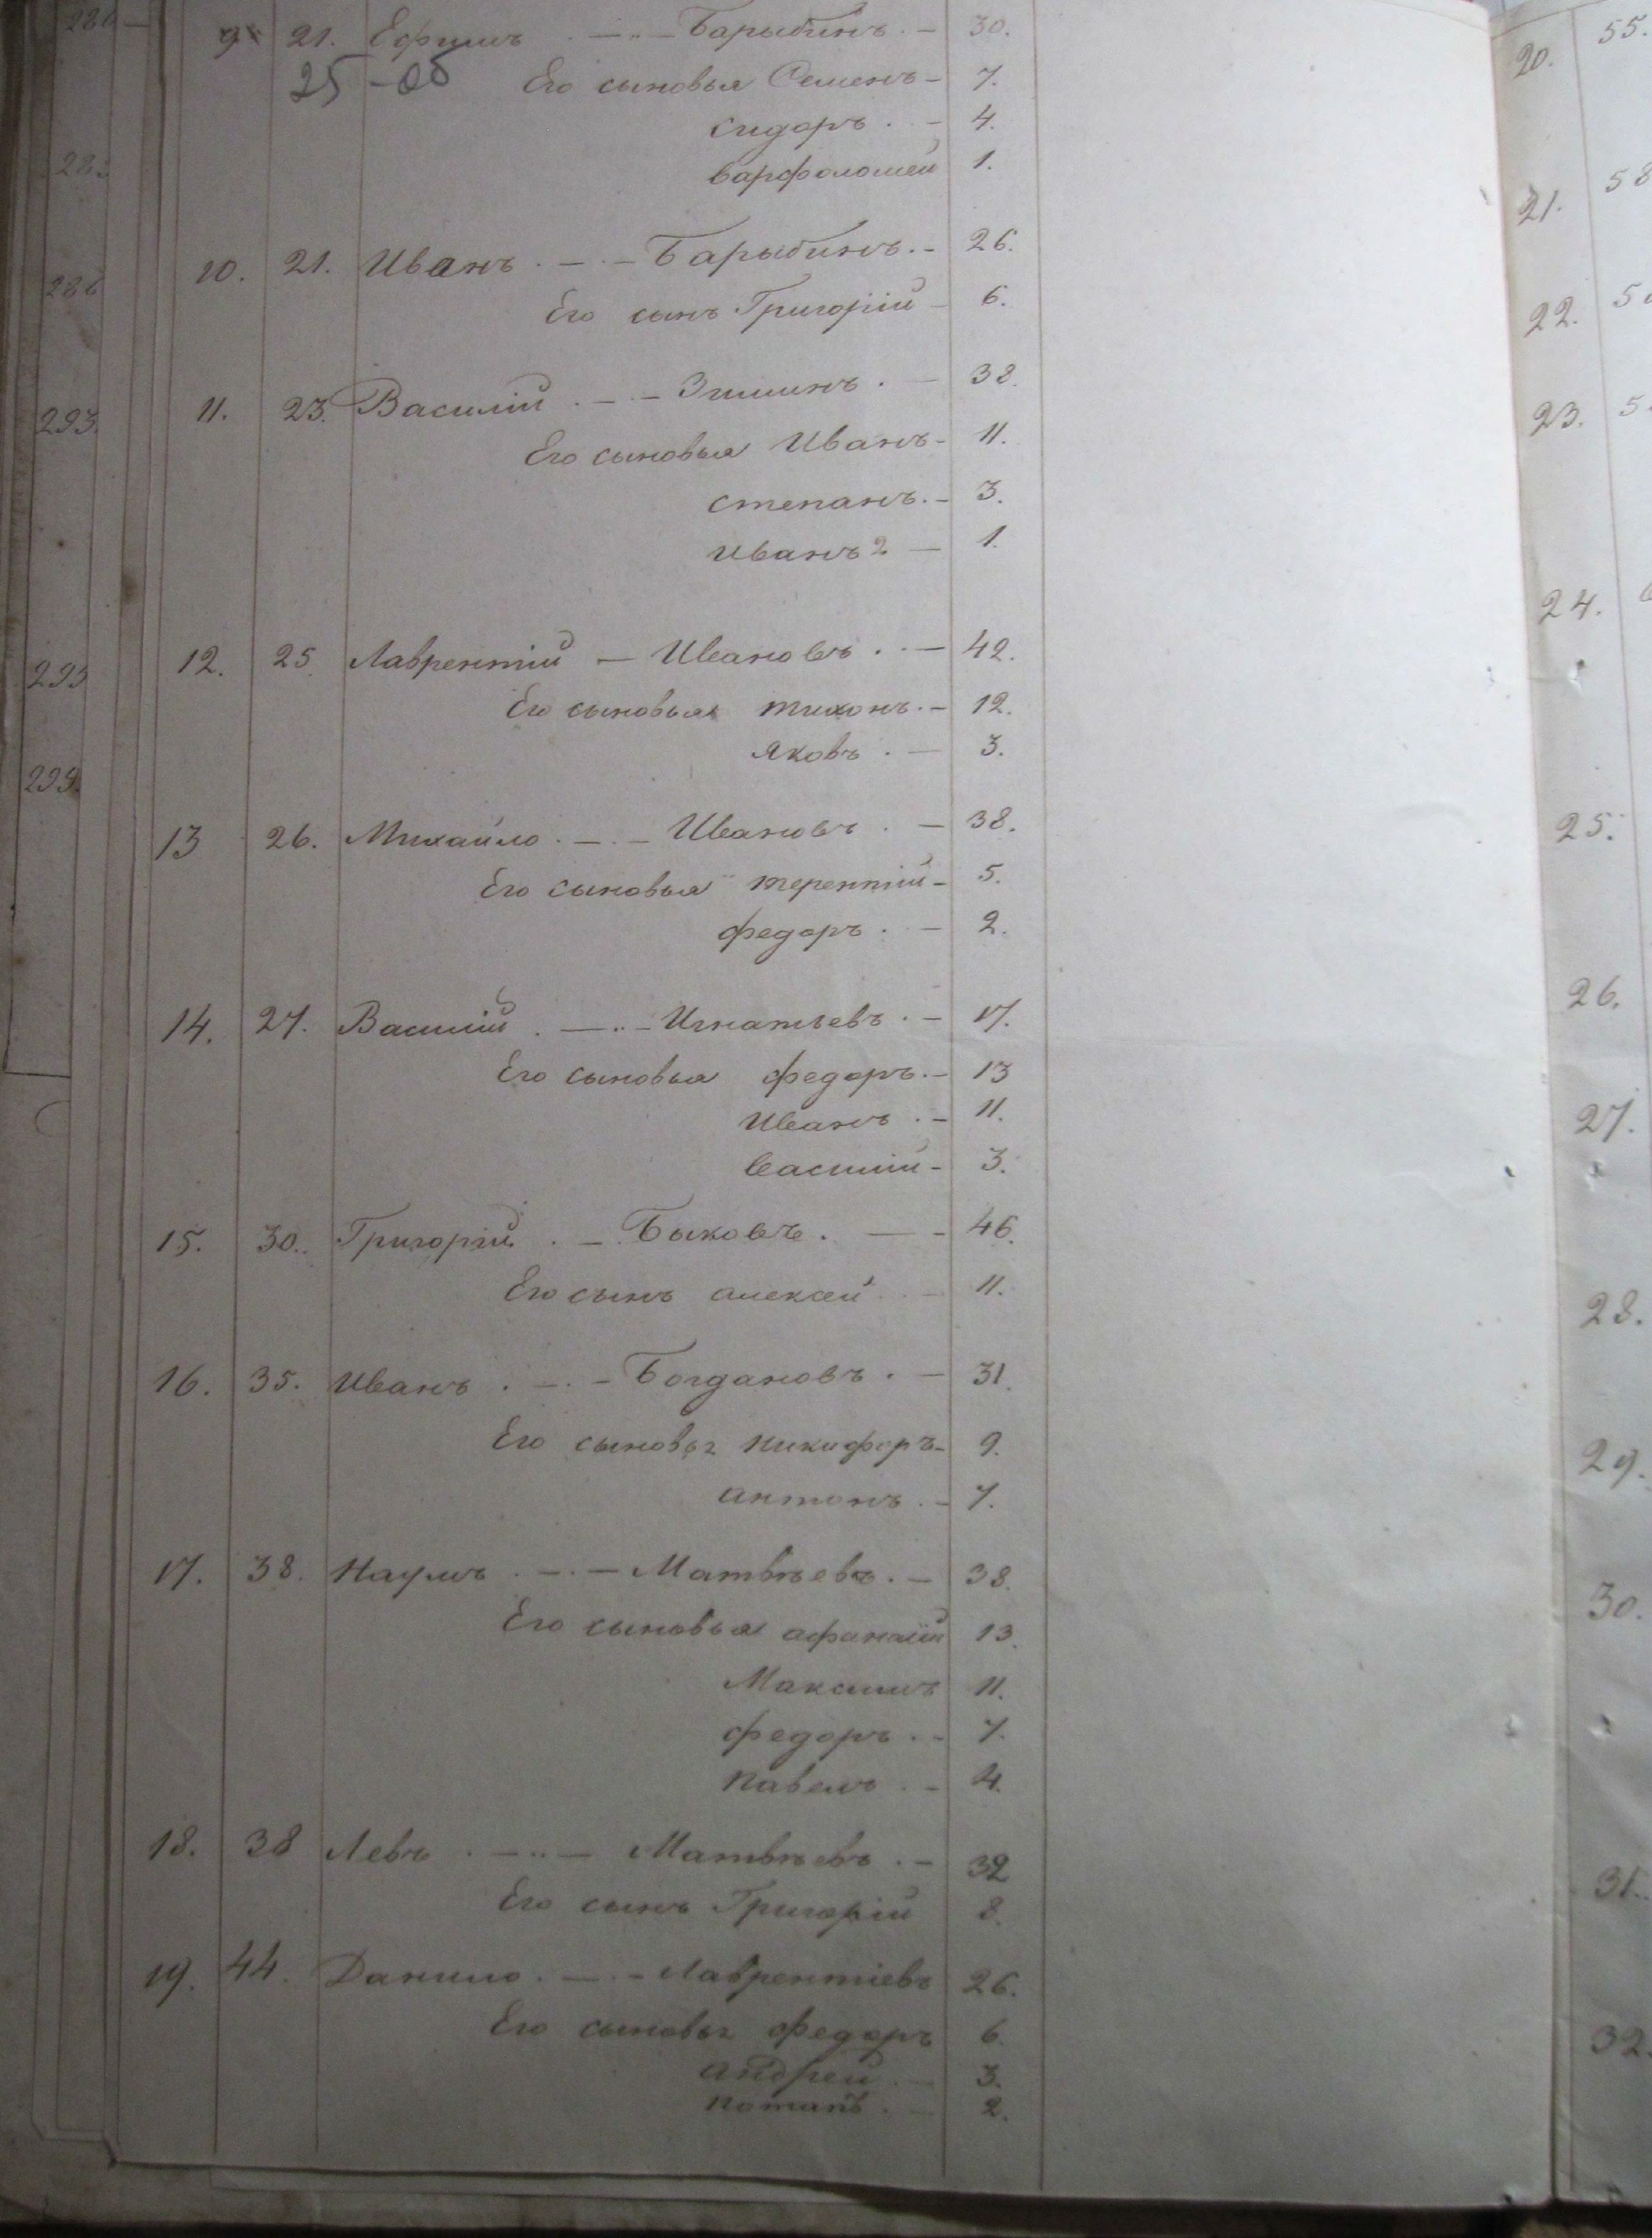 9. 21. Ефимъ . — .. — Барыбинъ . — 30.
25 - об Его сыновья Семенъ — 7.
сидоръ . — 4.
варфоломей 1.
10. 21. Иванъ . — . — Барыбинъ . — 26.
Его сынъ Григорій — 6.
11. 23. Василій . — . — Зиминъ . — 32.
Его сыновья Иванъ — 11.
степанъ . — 3.
иванъ 2 — 1.
12. 25 Лаврентій — Ивановъ . . — 42.
Его сыновья тихонъ . — 12.
яковъ . — 3.
13 26. Михайло . — . — Ивановъ . — 38.
Его сыновья терентій — 5.
федоръ . — 2.
14. 27. Василій . — .. — Игнатьевъ . — 17.
Его сыновья федоръ . — 13
Иванъ . — 11.
Василій — 3.
15. 30. Григорій . — Быковъ . — - 46.
Его сынъ алексей . . — 11.
16. 35. Иванъ . — . — Богдановъ . — 31.
Его сыновья никифоръ — 9.
антонъ . — 7.
17. 38. Наумъ . — . — Матвѣевъ . — 38.
Его сыновья афанасій 13.
Максимъ 11.
федоръ . — 7.
павелъ . — 4.
18. 38 Левъ . — .. — Матвѣевъ . — 32
Его сынъ Григорій 8.
19. 44. Данило . — . — Лаврентіевъ 26.
Его сыновья федоръ 6.
андрей . — 3.
потапъ . — 2.
293.
20. 55.
21. 58
22.
23.
24.
25.
26.
27.
28.
29.
30.
31.
32.